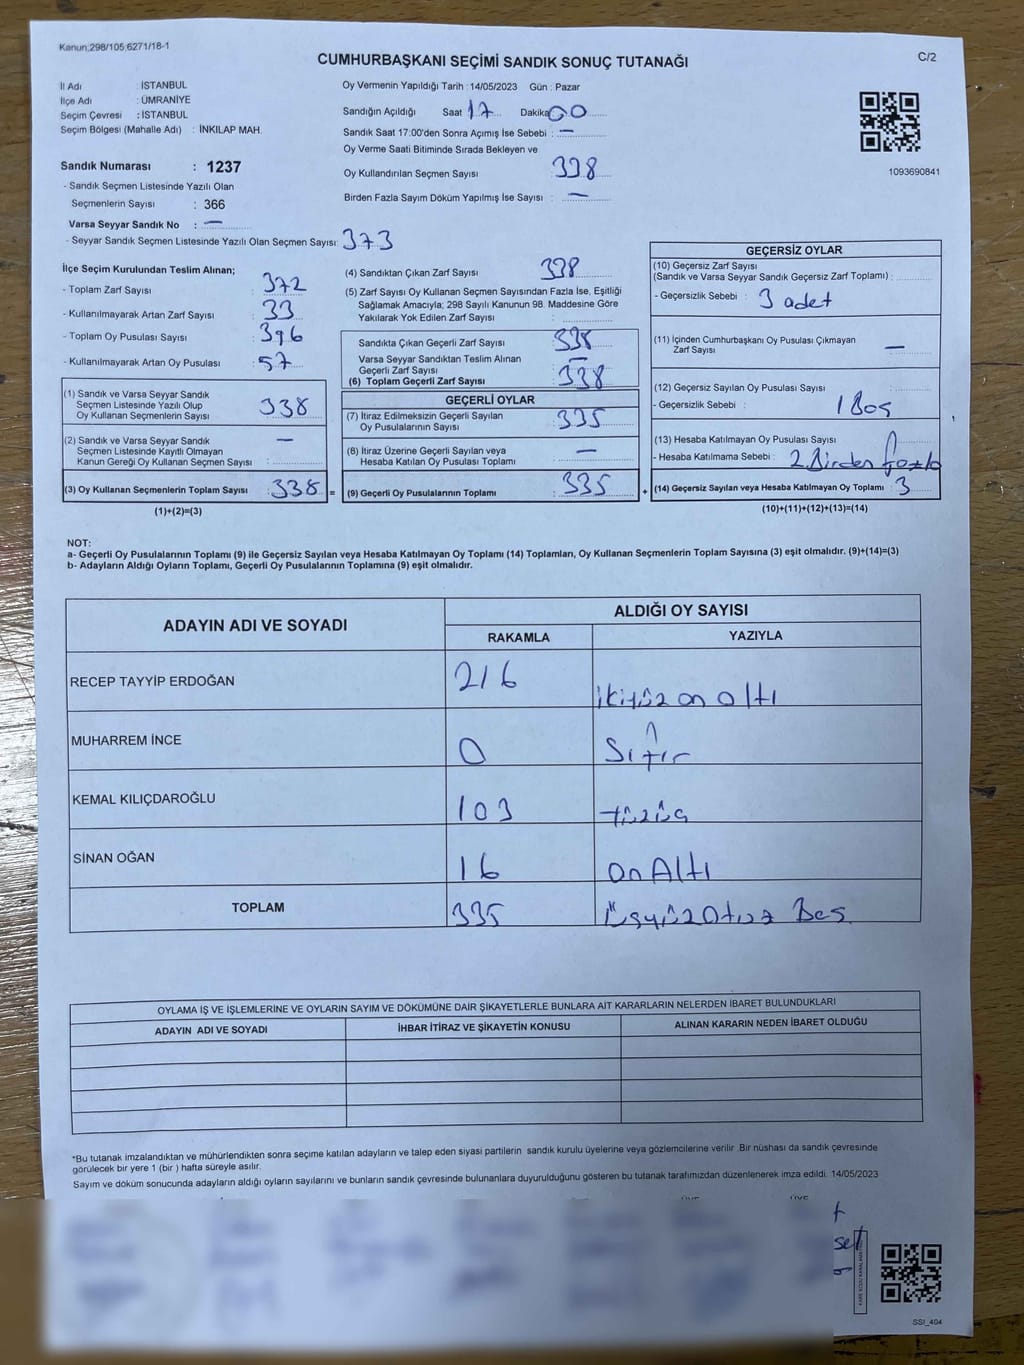 Kanun:298/105;6271/18-1
C/2
CUMHURBAŞKANI SEÇİMİ SANDIK SONUÇ TUTANAĞI
İl Adı : İSTANBUL
İlçe Adı : ÜMRANİYE
Seçim Çevresi : İSTANBUL
Seçim Bölgesi (Mahalle Adı) : İNKILAP MAH.
Sandık Numarası : 1237
- Sandık Seçmen Listesinde Yazılı Olan
Seçmenlerin Sayısı : 366
Varsa Seyyar Sandık No : —
- Seyyar Sandık Seçmen Listesinde Yazılı Olan Seçmen Sayısı: 373
Oy Vermenin Yapıldığı Tarih : 14/05/2023 Gün : Pazar
Sandığın Açıldığı Saat 17 Dakika 00
Sandık Saat 17:00'den Sonra Açımış İse Sebebi : —
Oy Verme Saati Bitiminde Sırada Bekleyen ve
Oy Kullandırılan Seçmen Sayısı : 338
Birden Fazla Sayım Döküm Yapılmış İse Sayısı : —
1093690841
İlçe Seçim Kurulundan Teslim Alınan;
- Toplam Zarf Sayısı : 372
- Kullanılmayarak Artan Zarf Sayısı : 33
- Toplam Oy Pusulası Sayısı : 396
- Kullanılmayarak Artan Oy Pusulası : 57
(1) Sandık ve Varsa Seyyar Sandık
Seçmen Listesinde Yazılı Olup
Oy Kullanan Seçmenlerin Sayısı : 338
(2) Sandık ve Varsa Seyyar Sandık —
Seçmen Listesinde Kayıtlı Olmayan
Kanun Gereği Oy Kullanan Seçmen Sayısı :
(3) Oy Kullanan Seçmenlerin Toplam Sayısı : 338 =
(1)+(2)=(3)
(4) Sandıktan Çıkan Zarf Sayısı : 338
(5) Zarf Sayısı Oy Kullanan Seçmen Sayısından Fazla İse, Eşitliği
Sağlamak Amacıyla; 298 Sayılı Kanunun 98. Maddesine Göre
Yakılarak Yok Edilen Zarf Sayısı :
Sandıkta Çıkan Geçerli Zarf Sayısı : 338
Varsa Seyyar Sandıktan Teslim Alınan
Geçerli Zarf Sayısı : —
(6) Toplam Geçerli Zarf Sayısı : 338
GEÇERLİ OYLAR
(7) İtiraz Edilmeksizin Geçerli Sayılan
Oy Pusulalarının Sayısı : 335
(8) İtiraz Üzerine Geçerli Sayılan veya —
Hesaba Katılan Oy Pusulası Toplamı :
(9) Geçerli Oy Pusulalarının Toplamı : 335 +
GEÇERSİZ OYLAR
(10) Geçersiz Zarf Sayısı
(Sandık ve Varsa Seyyar Sandık Geçersiz Zarf Toplamı) :
- Geçersizlik Sebebi : 3 adet
(11) İçinden Cumhurbaşkanı Oy Pusulası Çıkmayan
Zarf Sayısı : —
(12) Geçersiz Sayılan Oy Pusulası Sayısı :
- Geçersizlik Sebebi : 1 Boş
(13) Hesaba Katılmayan Oy Pusulası Sayısı :
- Hesaba Katılmama Sebebi : 2 Birden fazla
(14) Geçersiz Sayılan veya Hesaba Katılmayan Oy Toplamı : 3
(10)+(11)+(12)+(13)=(14)
NOT:
a- Geçerli Oy Pusulalarının Toplamı (9) ile Geçersiz Sayılan veya Hesaba Katılmayan Oy Toplamı (14) Toplamları, Oy Kullanan Seçmenlerin Toplam Sayısına (3) eşit olmalıdır. (9)+(14)=(3)
b- Adayların Aldığı Oyların Toplamı, Geçerli Oy Pusulalarının Toplamına (9) eşit olmalıdır.
ADAYIN ADI VE SOYADI
ALDIĞI OY SAYISI
RAKAMLA YAZIYLA
RECEP TAYYİP ERDOĞAN 216 ikiyüz on altı
MUHARREM İNCE 0 Sıfır
KEMAL KILIÇDAROĞLU 103 yüzüç
SİNAN OĞAN 16 on Altı
TOPLAM 335 Üçyüz Otuz Beş
OYLAMA İŞ VE İŞLEMLERİNE VE OYLARIN SAYIM VE DÖKÜMÜNE DAİR ŞİKAYETLERLE BUNLARA AİT KARARLARIN NELERDEN İBARET BULUNDUKLARI
ADAYIN ADI VE SOYADI İHBAR İTİRAZ VE ŞİKAYETİN KONUSU ALINAN KARARIN NEDEN İBARET OLDUĞU
*Bu tutanak imzalandıktan ve mühürlendikten sonra seçime katılan adayların ve talep eden siyasi partilerin sandık kurulu üyelerine veya gözlemcilerine verilir. Bir nüshası da sandık çevresinde
görülecek bir yere 1 (bir ) hafta süreyle asılır.
Sayım ve döküm sonucunda adayların aldığı oyların sayılarını ve bunların sandık çevresinde bulunanlara duyurulduğunu gösteren bu tutanak tarafımızdan düzenlenerek imza edildi. 14/05/2023
SSI_404